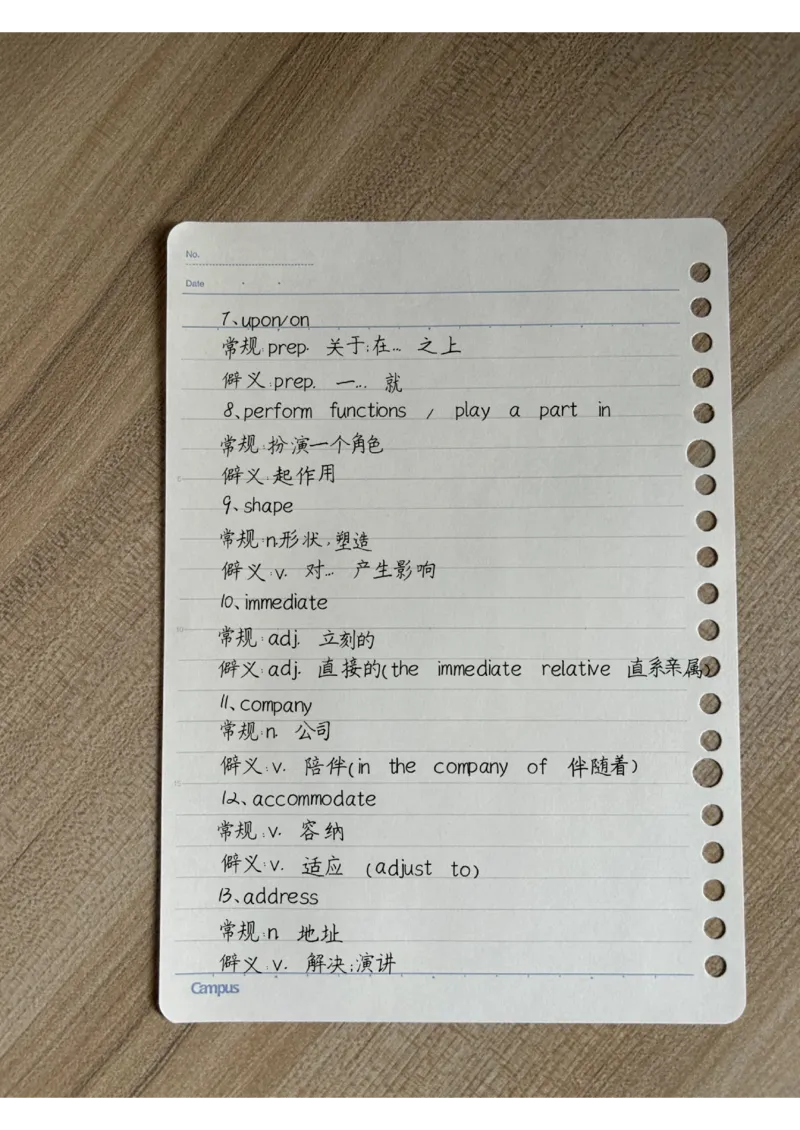 No.
Date
7、upon/on
常规:prep. 关于;在... 之上
僻义:prep. 一... 就
8、perform functions / play a part in
常规:扮演一个角色
僻义:起作用
9、shape
常规:n.形状,塑造
僻义:v. 对... 产生影响
10、immediate
常规:adj. 立刻的
僻义:adj. 直接的(the immediate relative 直系亲属)
11、company
常规:n. 公司
僻义:v. 陪伴(in the company of 伴随着)
12、accommodate
常规:v. 容纳
僻义:v. 适应 (adjust to)
13、address
常规:n. 地址
僻义:v. 解决;演讲
5
10
15
Campus